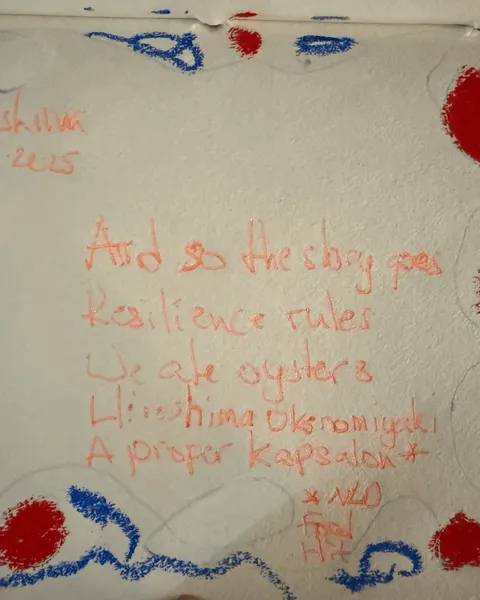 2025
And so the story goes
Resilience rules
We ate oysters
Hiroshima Okonomiyaki
A proper kapsalon*
*NLD
Food